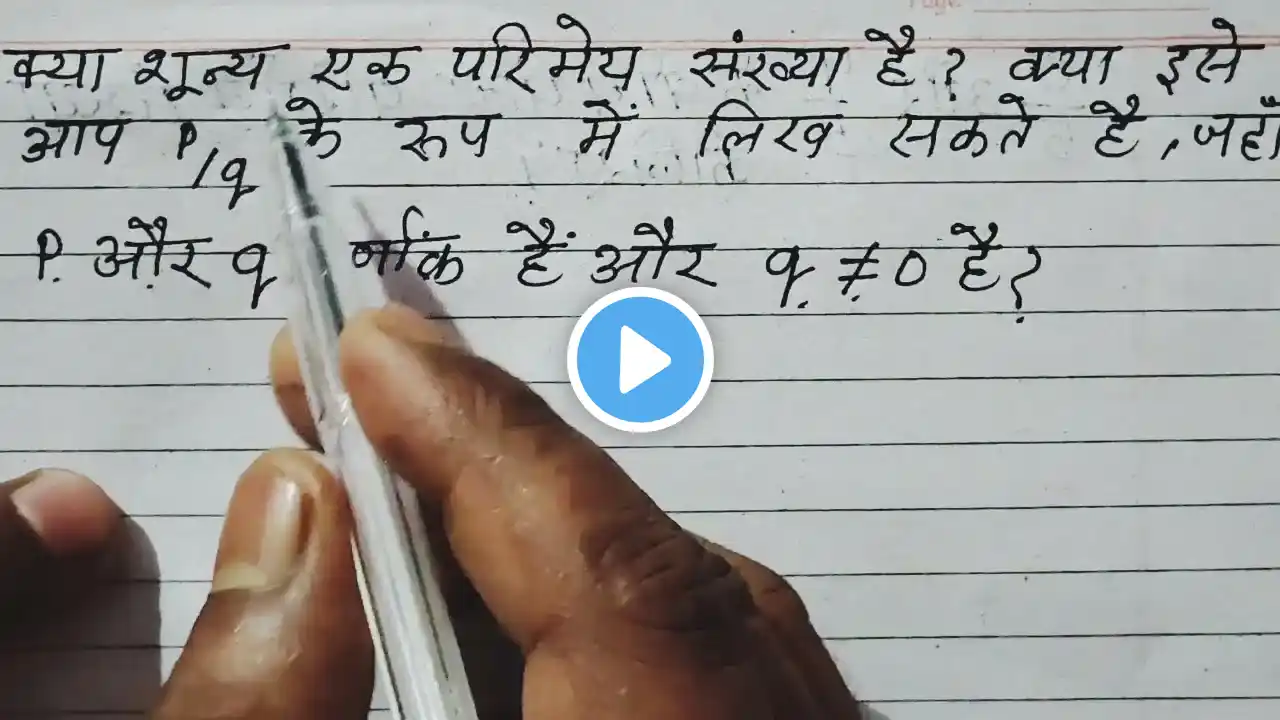 Page
क्या शून्य एक परिमेय संख्या है? क्या इसे
आप P/q के रूप में लिख सकते है, जहाँ
P और q है और q ≠ 0 है?